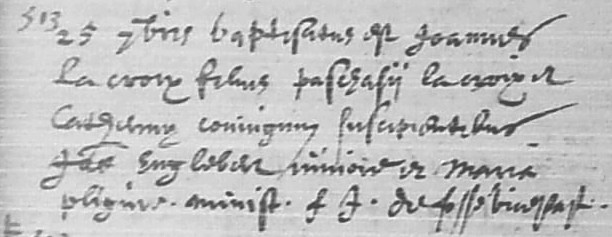 513
25 7bris baptisatus est Joannes
La croix filius paschasij lacroix et
Catharinæ coniugum suscipientibus
Joē Englebert iuniore et Maria
minist. f J. de fosse